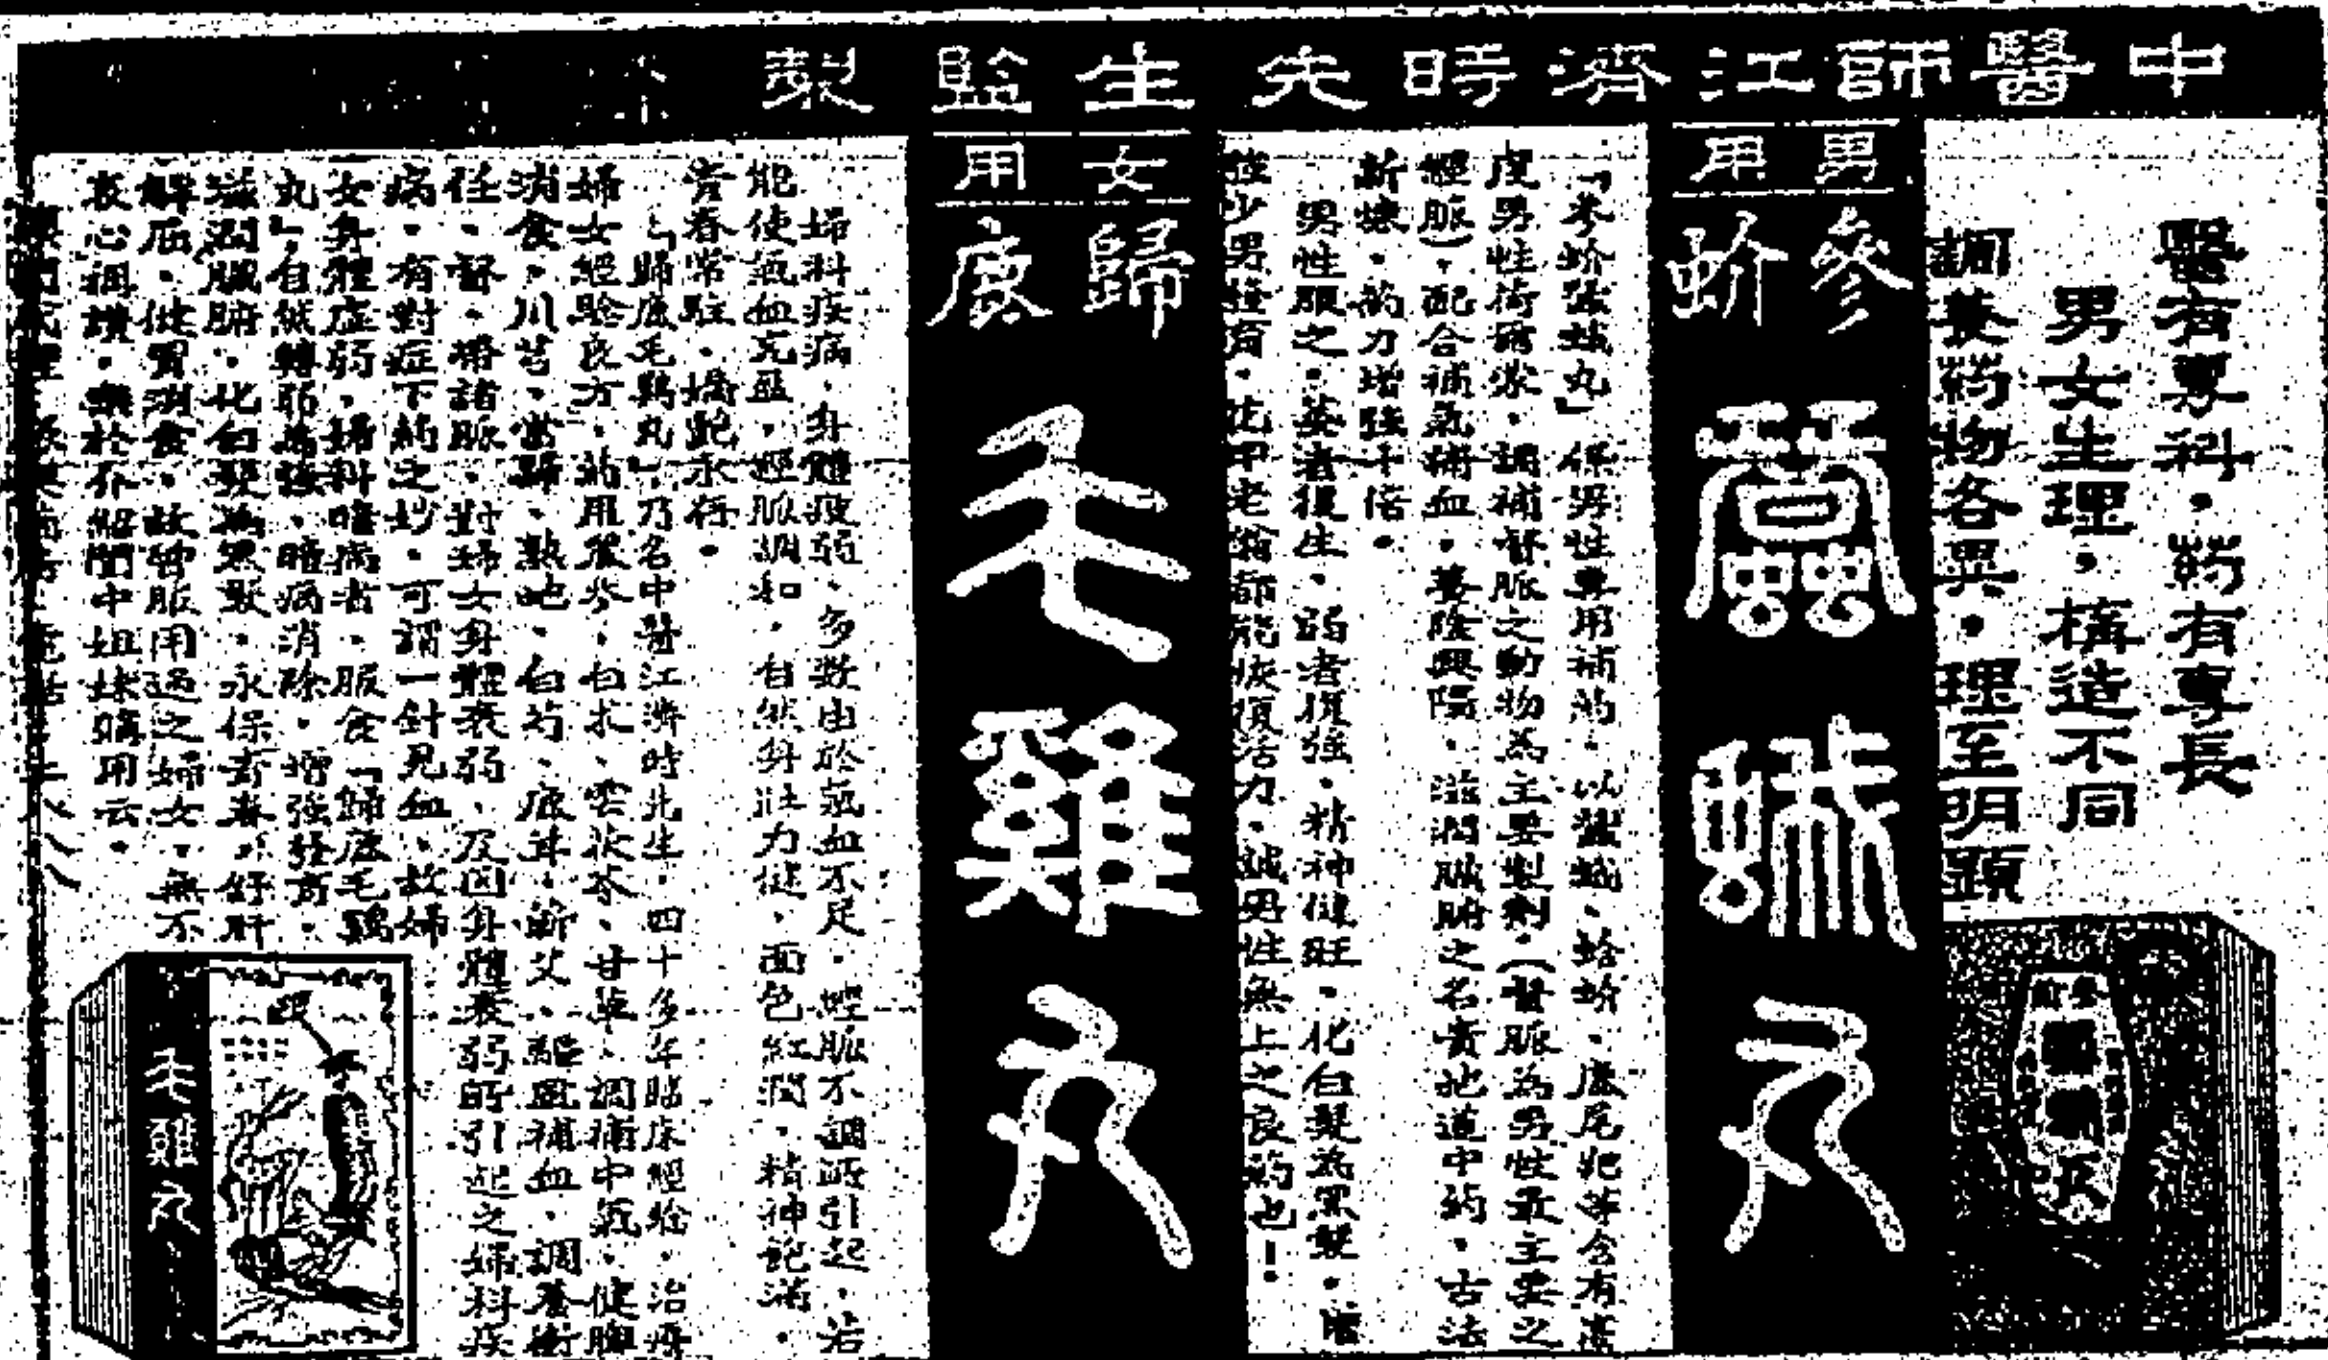 中醫師江濟時先生監製
醫有專科・葯有專長
男女生理・構造不同
調養葯物各異・理至明顯
男用
參蚧蠶蛾丸
「參蚧蠶蛾丸」係男性專用補葯・以蠶蛾・蛤蚧・鹿尾巴等含有
男性荷爾蒙・調補督脈之動物為主要製劑・(督脈為男性最主要之
經脈)・配合補氣補血・養陰興陽・滋潤臟腑之名貴地道中葯・古法
新煉・葯力增強十倍・
男性服之・萎者復生・弱者復強・精神健旺・化白髮為黑髮・
少男發育・花甲老翁都能恢復活力・誠男性無上之良葯也!・
女用
歸鹿毛雞丸
婦科疾病・身體疲弱・多數由於氣血不足・經脈不調所引起・若
能使氣血充盈・經脈調和・自然身壯力健・面色紅潤・精神飽滿・
青春常駐・嬌艷永存・
「歸鹿毛鷄丸」・乃名中醫江濟時先生・四十多年臨床經驗・治療
婦女經驗良方・葯用黨參・白朮・雲茯苓・甘草・調補中氣・健脾
消食・川芎・當歸・熟地・白芍・鹿茸・蘄艾・驅風補血・調養衝
任・督・帶諸脈・對婦女身體衰弱・及因身體衰弱所引起之婦科疾
病・有對症下葯之妙・可謂一針見血・故婦
女身體虛弱・婦科暗病者・服食「歸鹿毛鷄
丸」・自能轉弱為強・暗病消除・增強發育・
滋潤臟腑・化白髮為黑髮・永保青春・舒肝
解屈・健胃消食・故曾服用過之婦女・無不
衷心祖讚・樂於介紹閨中姐妹購用云・
毛雞丸